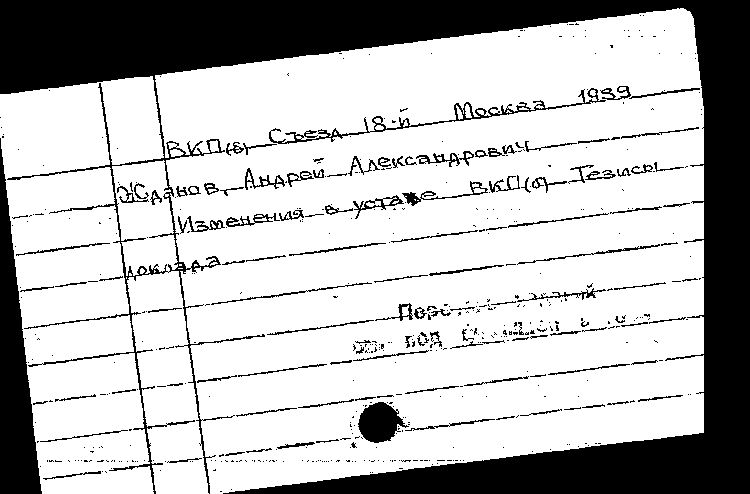 ВКП(б) Съезд 18-й Москва 1939
Жданов, Андрей Александрович
Изменения в уставе ВКП(б) Тезисы
доклада
под